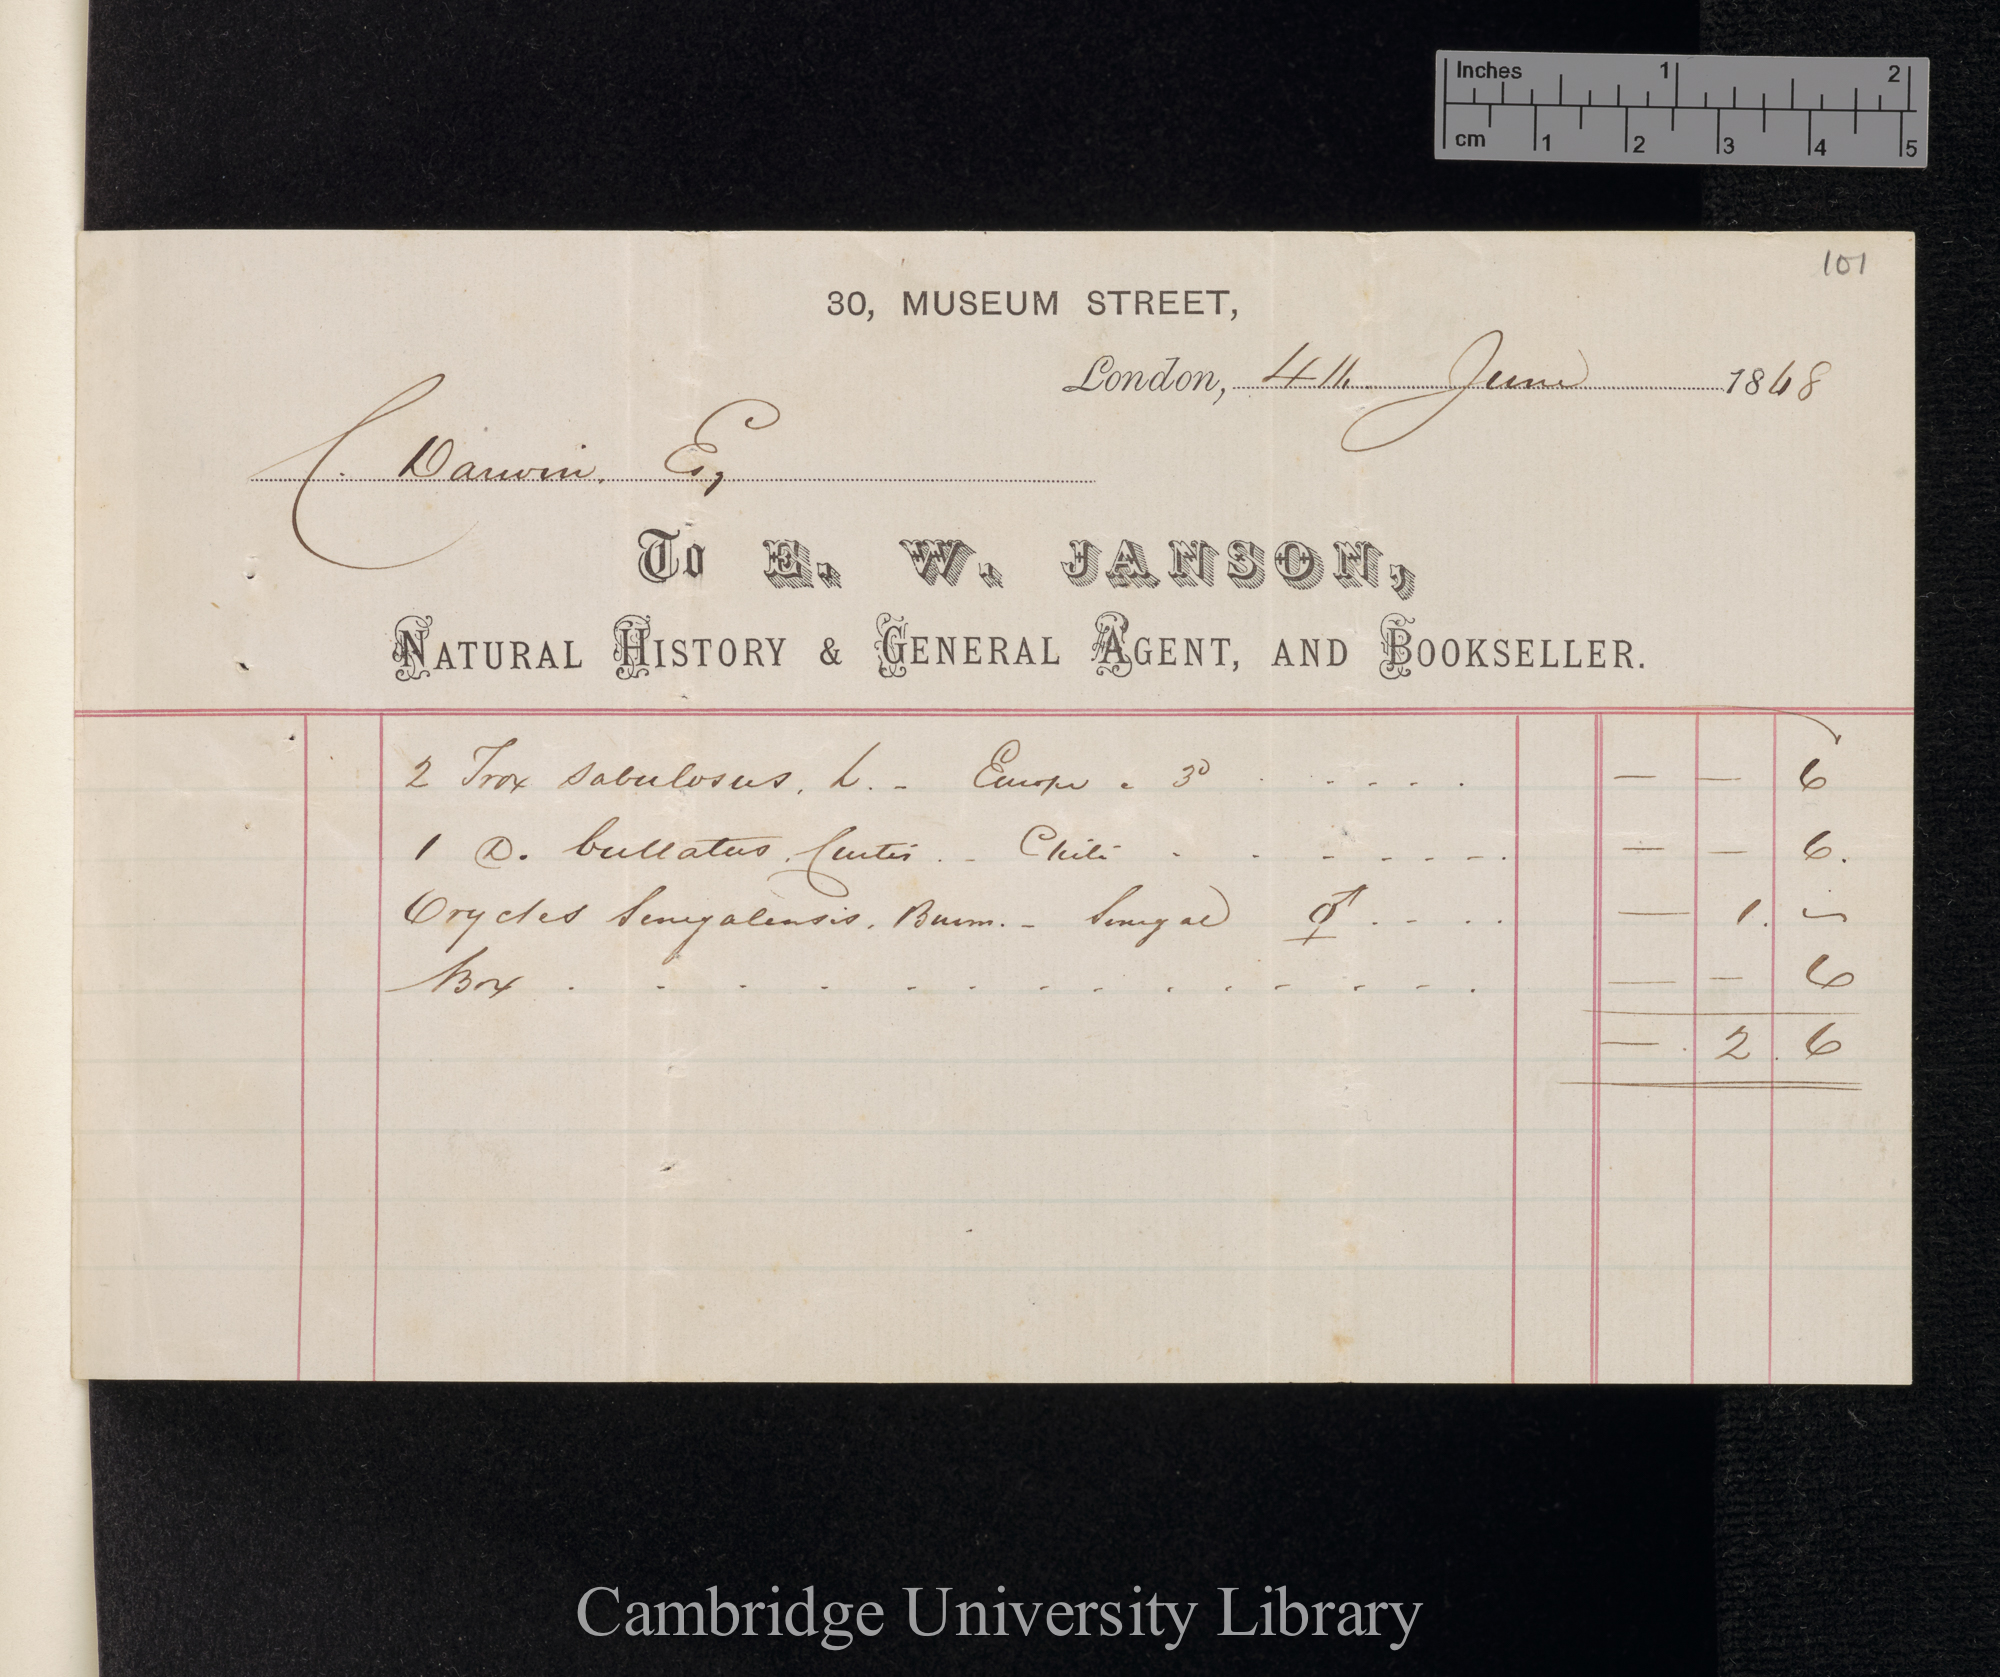 Inches 1 2
cm 1 2 3 4 5
101
30, MUSEUM STREET,
London, 4th June 1868
C. Darwin, Esq
To E. W. JANSON,
NATURAL HISTORY & GENERAL AGENT, AND BOOKSELLER.
2 Trox sabulosus, L. - Europe . 3d . - - - - . — — 6
1 D. bullatus, Curtis . - Chili - - - - - - . — — 6.
Oryctes Senegalensis, Burm. - Senegal ♂ ♀ . - - . — 1. -
Box . - - - - - - - - - - - - . — — 6
— . 2 . 6
Cambridge University Library